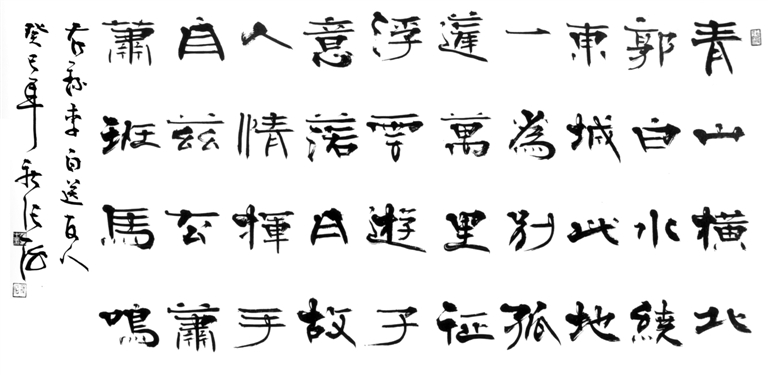 青山橫北
郭白水繞
東城此地
一為別孤
蓬萬里征
浮雲遊子
意落日故
人情揮手
自茲去蕭
蕭班馬鳴
右錄李白送友人
癸巳年